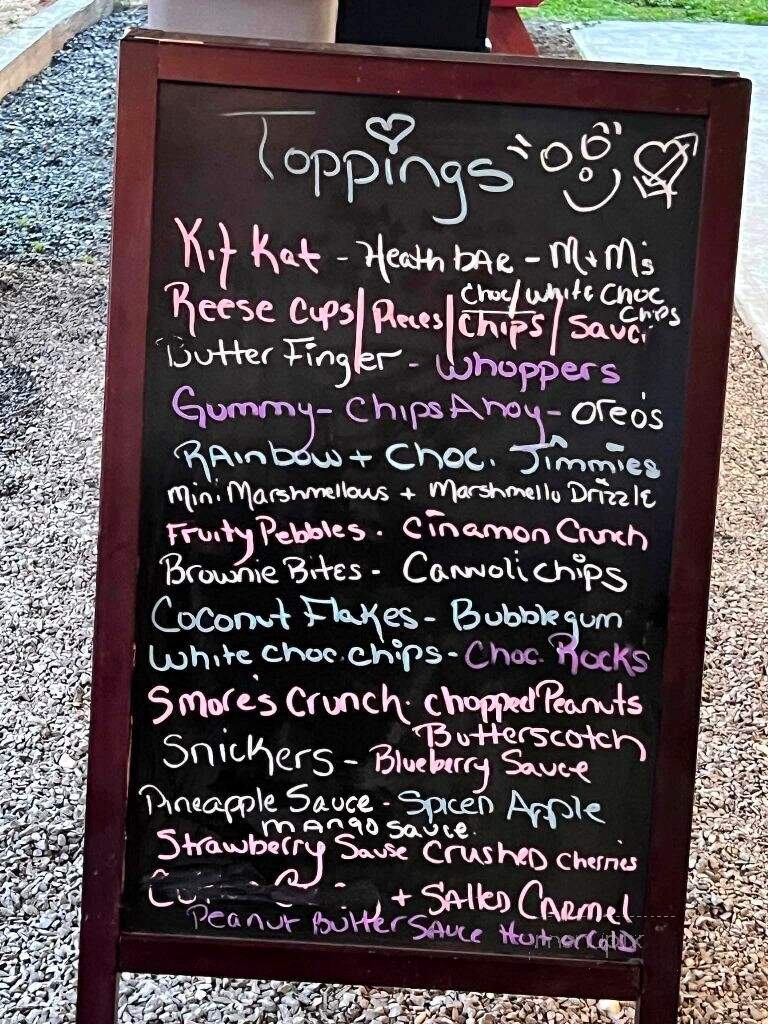 Toppings
Kit Kat - Heath bar - M+M's
Choc/White Choc Chips
Reese Cups/Pieces/Chips/Sauc
Butter Finger - Whoppers
Gummy - Chips Ahoy - Oreo's
Rainbow + Choc. Jimmies
Mini Marshmellows + Marshmello Drizzle
Fruity Pebbles. Cinamon Crunch
Brownie Bites - Cannoli chips
Coconut Flakes - Bubblegum
White choc. chips - Choc. Rocks
Smore's Crunch. chopped Peanuts
Butterscotch
Snickers - Blueberry Sauce
Pineapple Sauce - Spiced Apple
Mango Sauce.
Strawberry Sause Crushed Cherries
+ Salted Carmel
Peanut Butter Sauce Hot or Cold